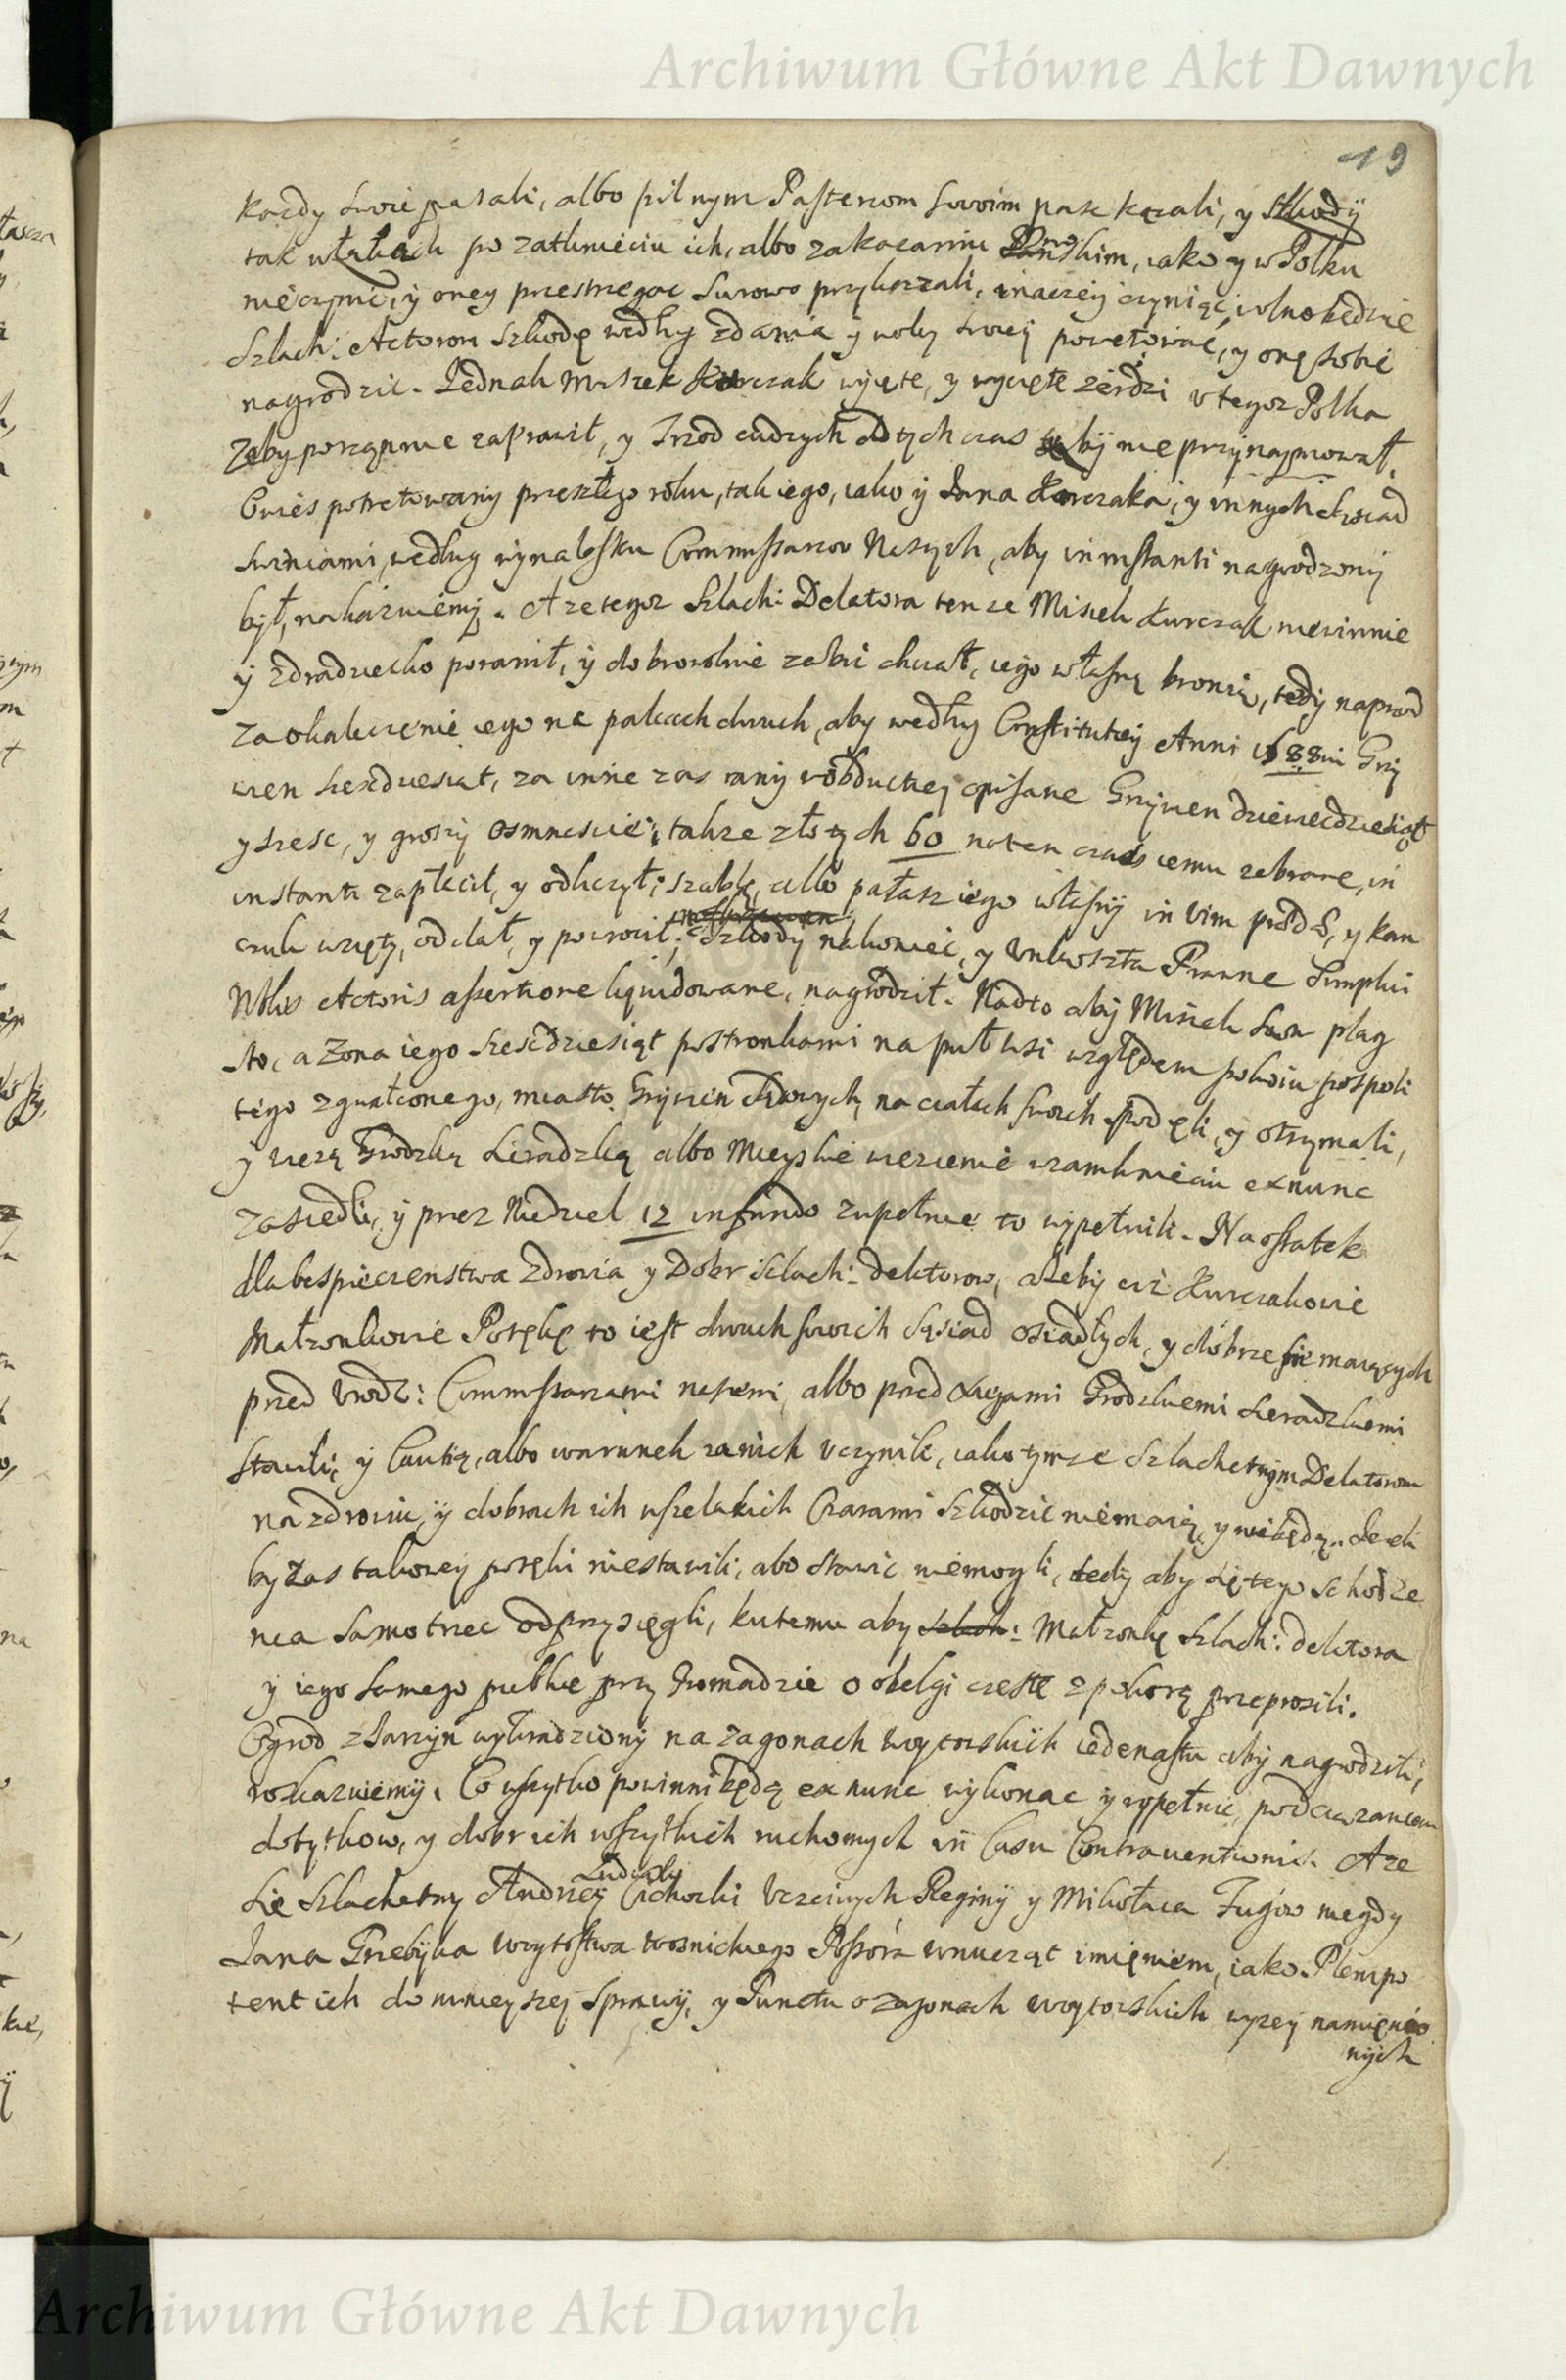 Archiwum Główne Akt Dawnych
19
kazdy swoie pasali, albo pilnym Pasterzom swoim pasc kazali, y szkody
tak w łąkach po zatknieciu ich, albo zakazaniu Pańskim, iako y w Polku
nieczynic, y oney przestrzegac surowo przykazali, inaczey czyniąc, wolno będzie
Szlach: Actorom szkodę według zdania y woley swoiey powetować, y onę sobie
nagrodzic. Jednak Misiek Kurczak wyięte, y wycięte zerdzi v tegoz Polka
zeby porząnnie zaprawił, y Trzod cudzych od tych czas by nie przynaymował.
Owies potretowany przeszłego roku, tak iego, iako y Jana Kurczaka, y innych
swiniami, według wynalasku Commissarzow Naszych, aby in instanti nagrodzony
był, nakazuiemy. A ze tegoz Szlach: Delatora tenze Misiek Kurczak niewinnie
y zdradziecko poranił, y dobrowolnie zabic chciał, iego własną bronią, tedy naprzod
za okaleczenie iego na palcach dwuch, aby według Constitutiey Anni 1588vi Grzy
wien szescdziesiąt, za inne zas rany w obductiey opisane Grzywien dziewiecdziesiąt
y szesc, y groszy osmnascie; takze złotych 60 naten czas iemu zebrane, in
instanti zapłacił, y odliczył; szablę, albo pałasz iego własny in vim prædæ, y kan
czuk wzięty, oddał, y powrocił; szkody nakoniec, y Unkoszta Prawne simplici
Nobilis Actoris assertione liquidowane, nagrodził. Nadto aby Misiek sam plag
sto, a zona iego szescdziesiąt postronkami na puł wsi względem pokoiu pospoli
tego zgwałconego, miasto Grzywien sądowych, na ciałach swoich podięli, y otrzymali,
y wiezą Grodzką Sieradzką albo Mieyskie wiezienie w zamknieciu exnunc
zasiedli, y przez Niedziel 12 in fundo zupełnie to wypełnili. Na ostatek
dla bespieczenstwa zdrowia y Dobr Szlach: delatorow, ażeby ciż Kurczakowie
Małzonkowie Porękę to iest dwuch swoich sąsiad osiadłych, y dobrze sie maiących
przed Urodz: Commissarzami naszemi, albo przed xięgami Grodzkiemi Sieradzkiemi
stawili, y Cautią, albo warunek za nich vczynili, iako tymze Szlachetnym Delatorom
na zdrowiu, y dobrach ich wszelakich Czarami szkodzic niemaią, y niebędą. Jezeli
by zas takowey poręki niestawili, abo stawic niemogli, tedy aby się tego schodze
nia samotrzec odprzysięgli, ku temu aby Małzonkę Szlach: delatora
y iego samego publice przy Gromadzie o obelgi częste z pokorą przeprosili.
Ogrod z Jarzyn wykradziony na zagonach woytowskich iedenastu aby nagrodzili,
roskazuiemy. Co wszytko powinni będą ex nunc wykonac y wypełnic, pod
dobytkow, y dobr ich wszytkich ruchomych in Casu Contraventionis. A ze
się Szlachetny Andrzey Cichocki Uczciwych Reginy y Mikołaia Zugow niegdy
Jana Grzebyka woytostwa wosnickiego Possora wnucząt imięniem, iako Plenipo
tent ich do ninieyszey Sprawy, y Punctu o zagonach woytowskich wyzey namięnio
nych
Archiwum Główne Akt Dawnych